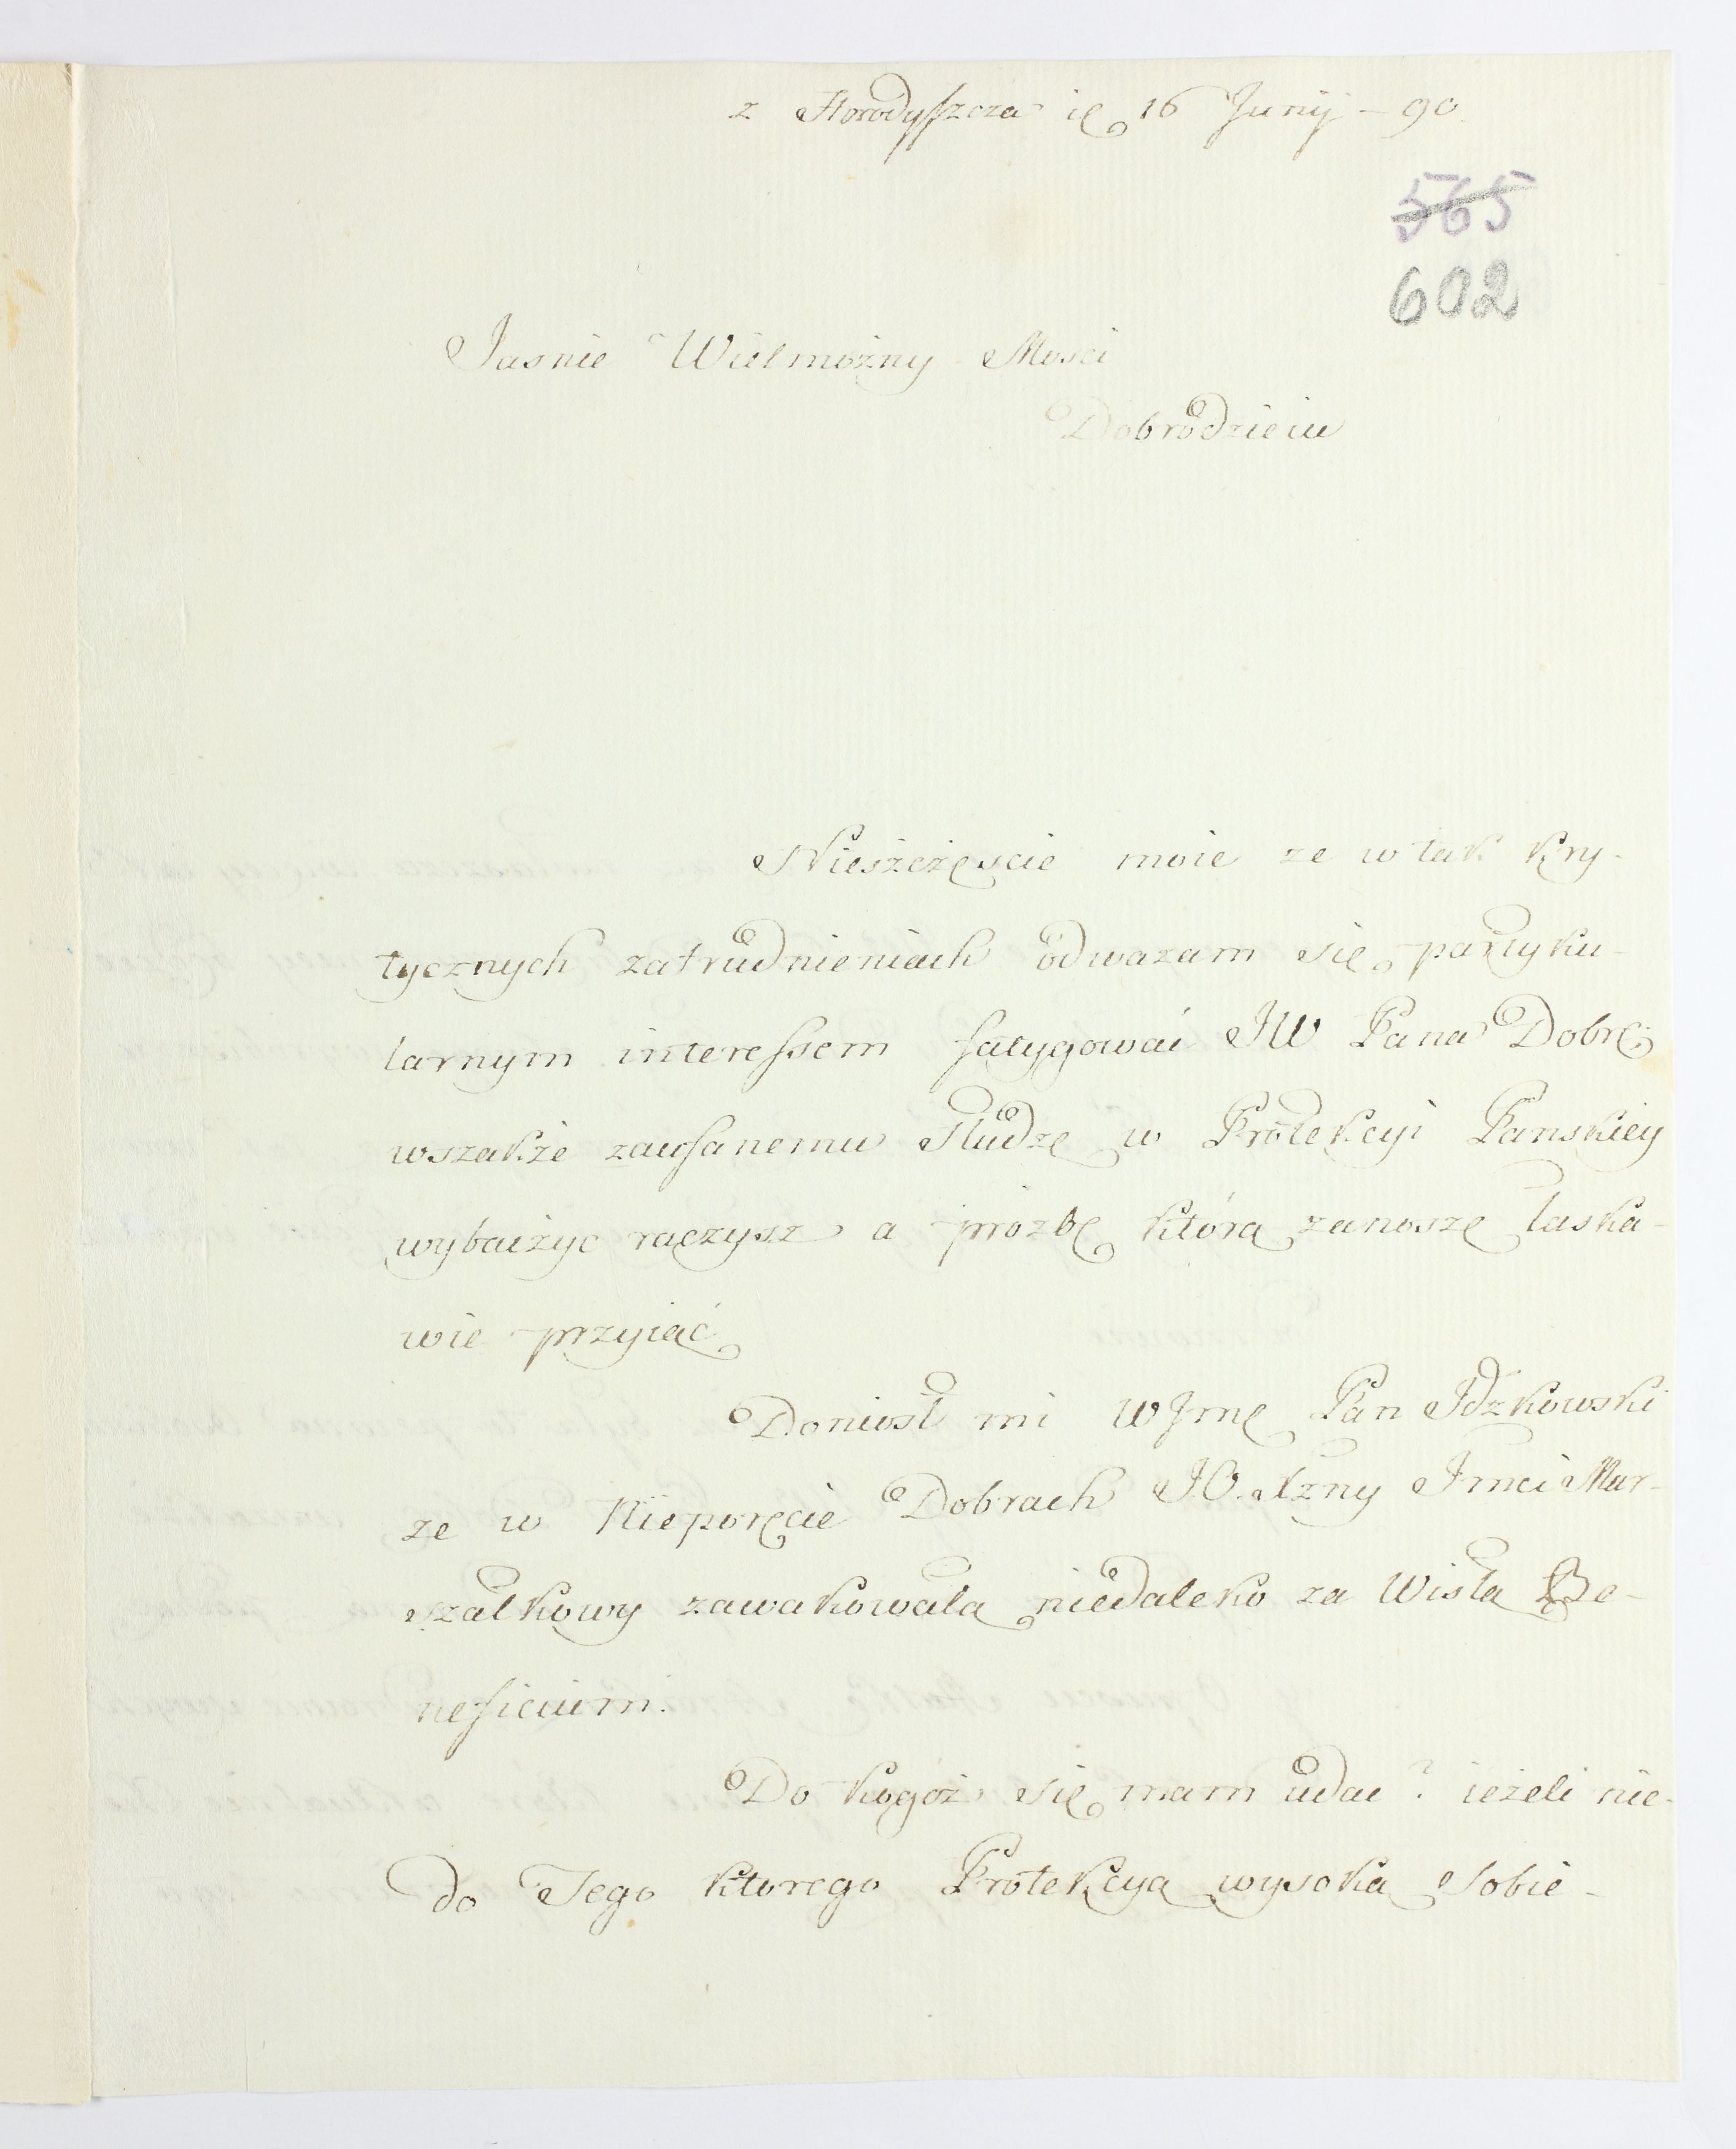 z Horodyszcza ię 16 Junij – 90.
565
602
Jasnie Wielmożny Mosci
Dobrodzieiu
Nieszczęscie moie ze w tak kry-
tycznych zatrudnieniach odwazam się partyku-
larnym interessem fatygować JW Pana Dobrę
wszakże zaufanemu Słudzę w Protekcyi Panskiey
wybaczyc raczysz a prozbę którą zanoszę łaska-
wie przyiąć
Doniosł mi WJmę Pan Idzkowski
ze w Nieporęcie Dobrach JO. Xzny Jmci Mar-
szałkowy zawakowała niedaleko za Wisłą Be-
neficium.
Do kogoż się mam udac? ieżeli nie-
do Tego ktorego Protekcyą wysoką sobie-